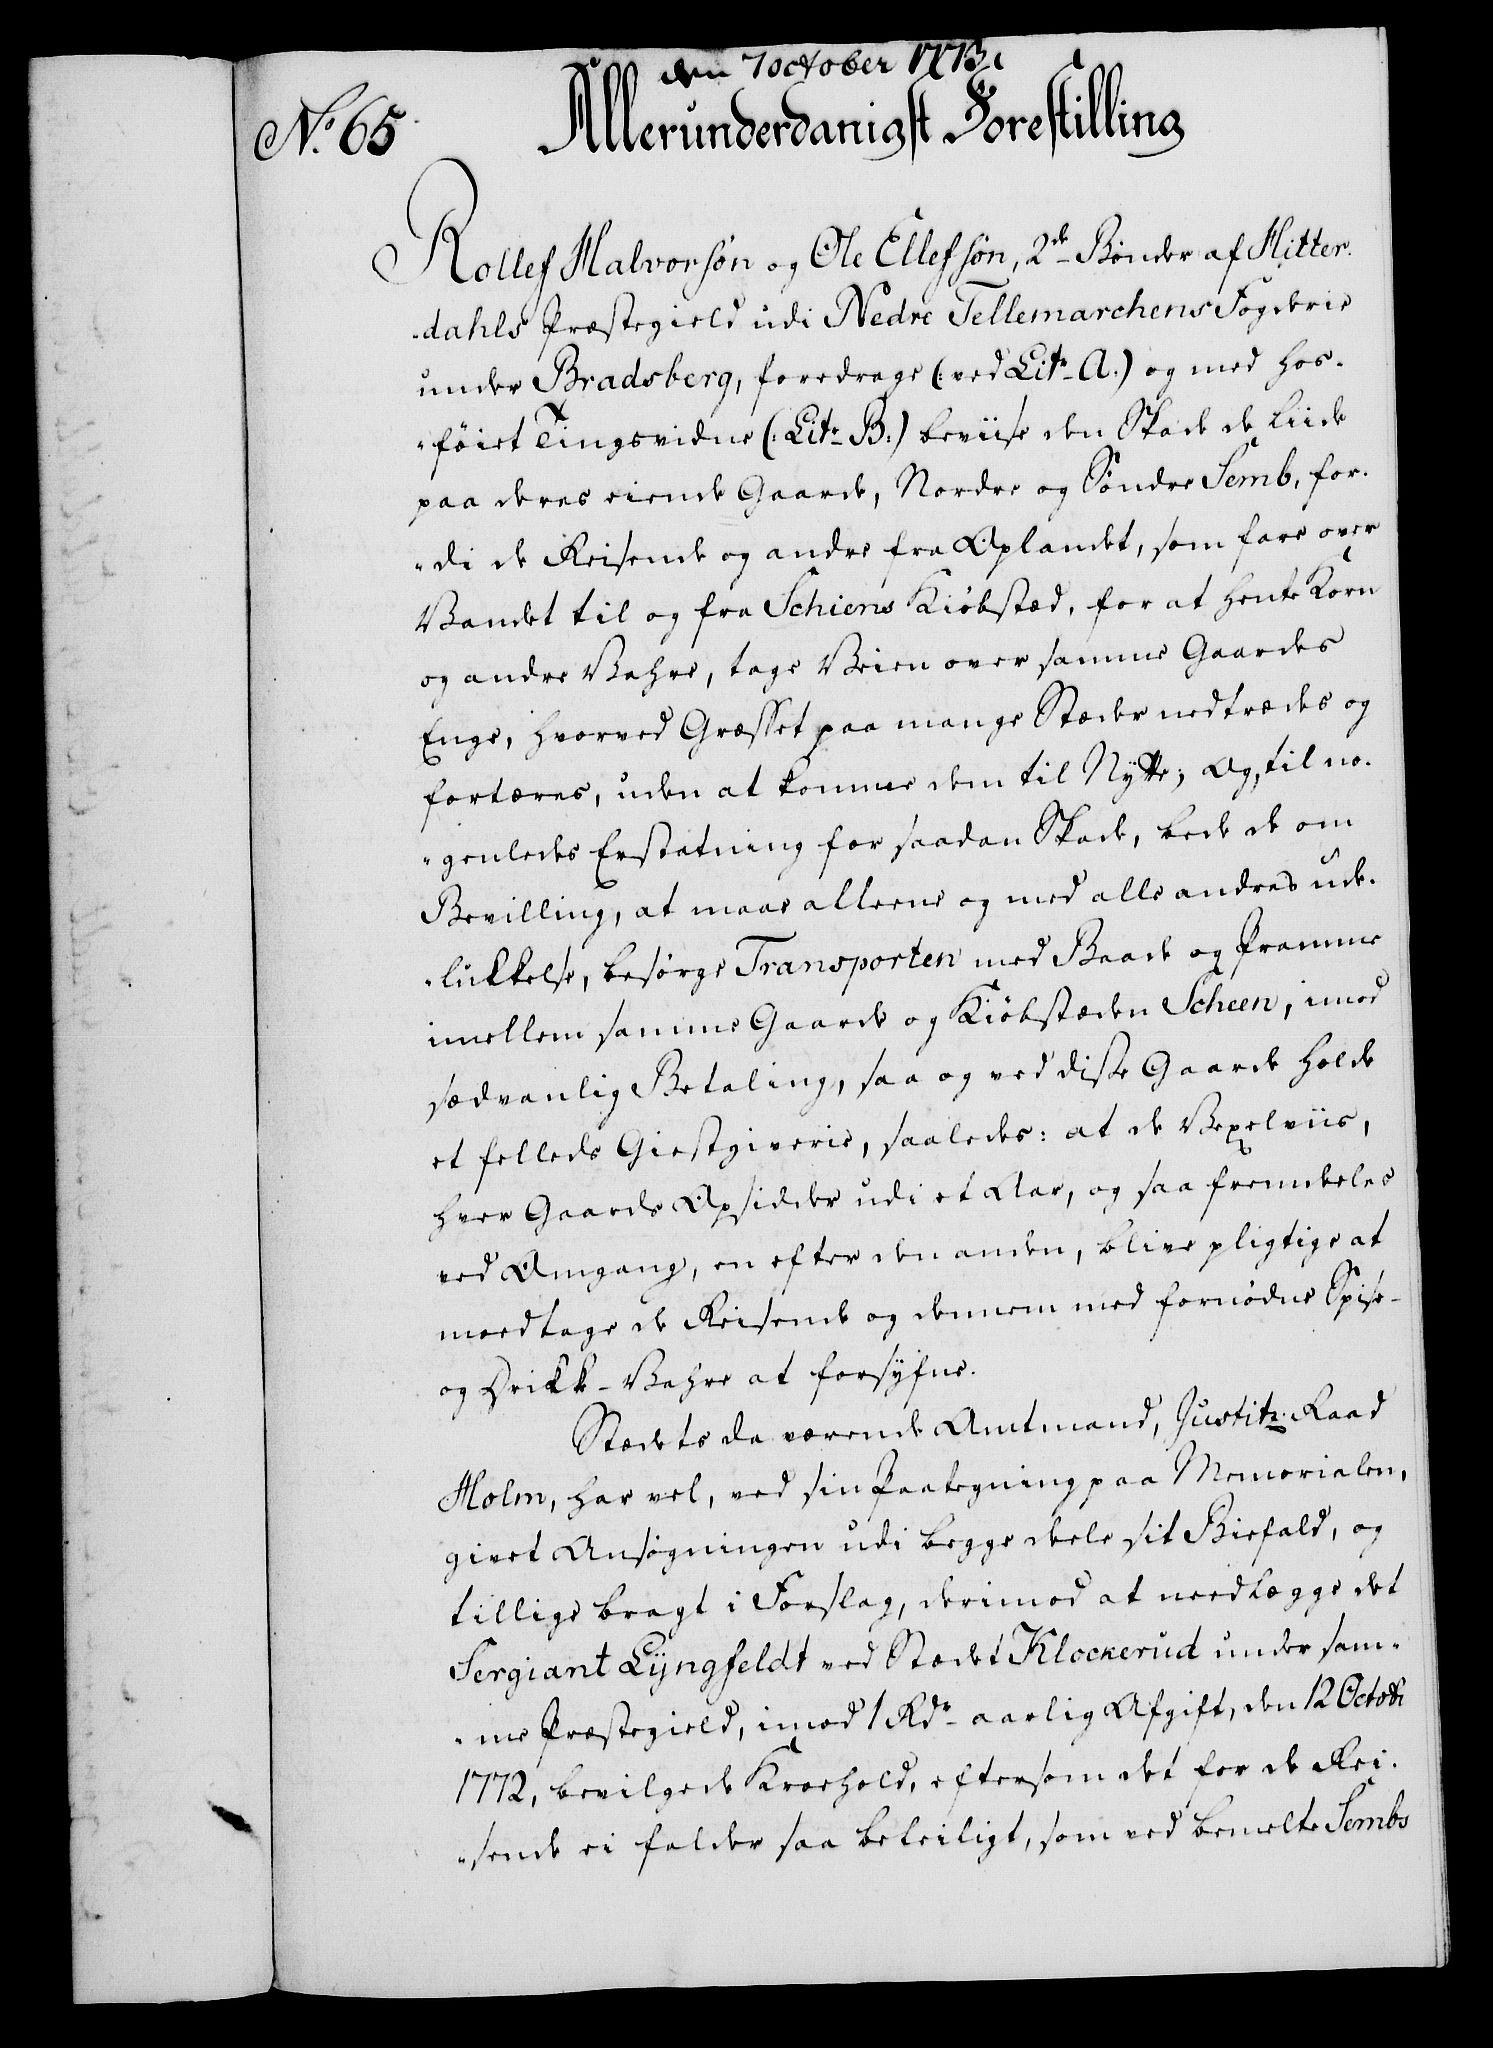 den 7 october 1773.
No. 65
Allerunderdanigst Forestilling
Rollef Halvorsøn og Ole Ellefsøn, 2de Bønder af Hitter-
-dahls Præstegield udi Nedre Tellemarchens Fogderie
under Bradsberg, foredrage (: ved Litr. A.) og med hos-
-føiet Tingsvidne (: Litr. B:) beviise den Skade de liide
paa deres eiende Gaarde, Nordre og Søndre Semb, for-
-di de Reisende og andre fra Oplandet, som fare over
Vandet til og fra Schiens Kiøbstæd, for at hente Korn
og andre Vahre, tage Veien over samme Gaardes
Enge, hvorved Græsset paa mange Stæder nedtrædes og
fortæres, uden at komme dem til Nytte; Og, til no-
-genledes Erstatning for saadan Skade, bede de om
Bevilling, at maae alleene og med alle andres ude-
-lukkelse, besørge Transporten med Baade og Pramme
imellem samme Gaarde og Kiøbstæden Scheen, imod
sædvanlig Betaling, saa og ved disse Gaarde holde
et felleds Giestgiverie, saaledes: at de Vexelviis,
hver Gaards Opsidder udi et Aar, og saa fremdeles
ved Omgang, en efter den anden, blive pligtige at
modtage de Reisende og dennem med fornødne Spise-
og Drikke-Vahre at forsyfne.
Stædets da værende Amtmand, Justitz-Raad
Holm, har vel, ved sin Paategning paa Memorialen,
givet Ansøgningen udi begge dele sit Biefald, og
tillige bragt i Forslag, derimod at nedlægge det
Sergiant Lyngfeldt ved Stædet Klockerud under sam-
-me Præstegield, imod 1 Rdr. aarlig Afgift, den 12 Octobr
1772, bevilgede Kroehold, eftersom det for de Rei-
-sende ei falder saa beleiligt, som ved bemelte Sembs